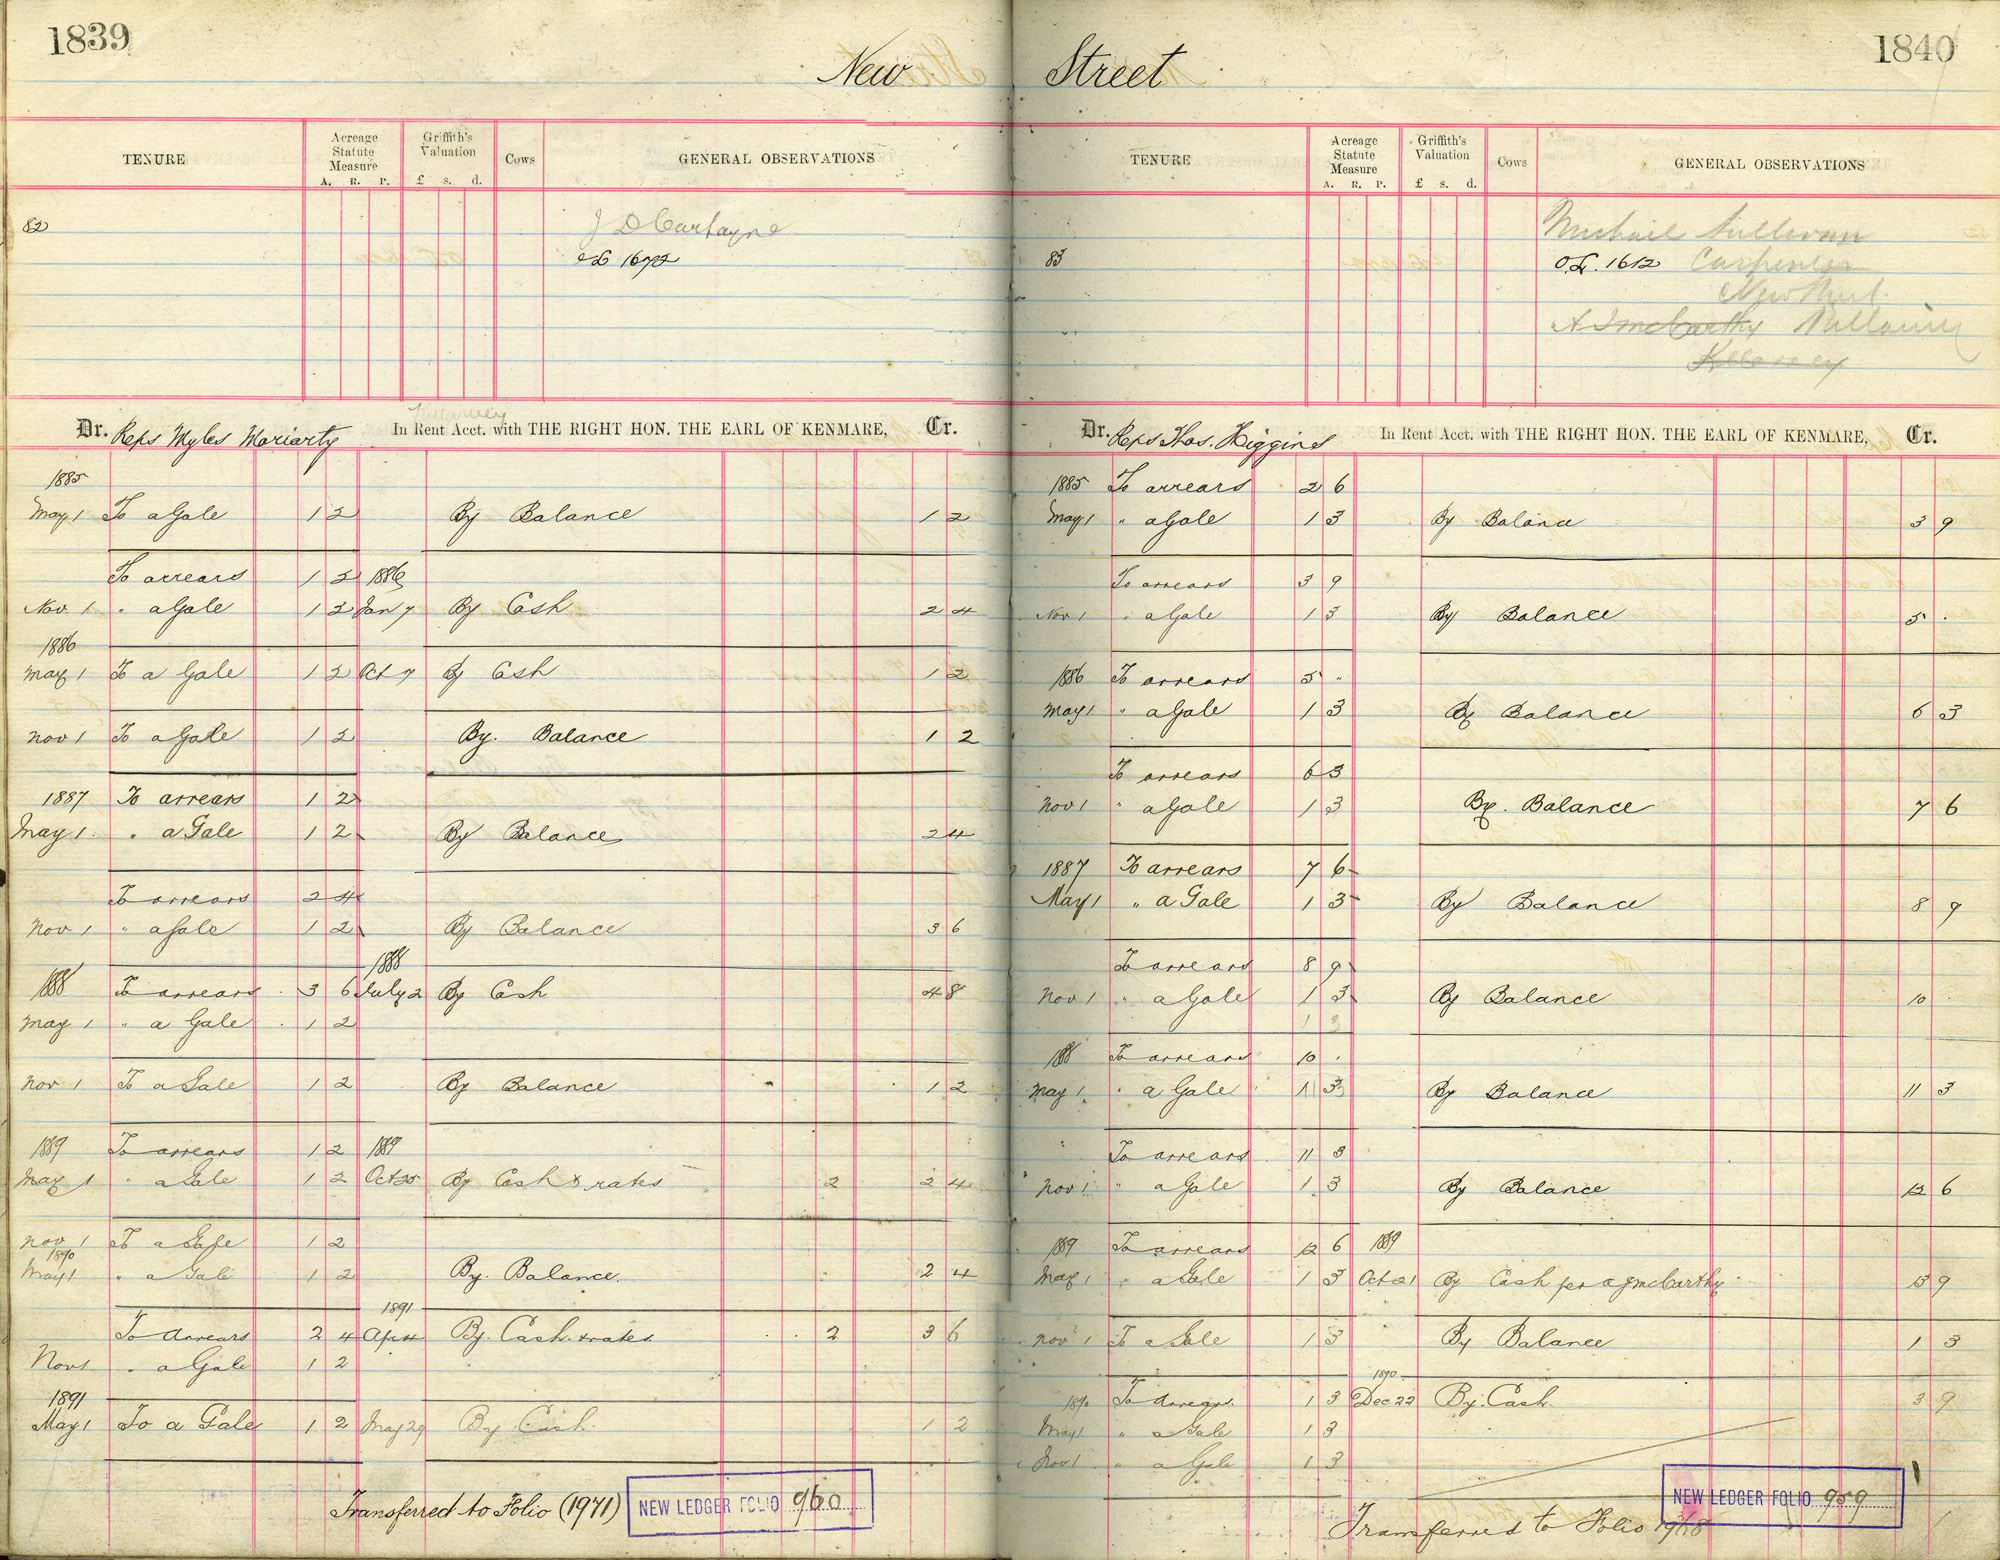 1839
New
TENURE
Acreage Statute Measure
A. R. P.
Griffith's Valuation
£ s. d.
Cows
GENERAL OBSERVATIONS
82
OL 1672
Dr. Reps Myles Moriarty In Rent Acct. with THE RIGHT HON. THE EARL OF KENMARE, Cr.
1885
May 1 To a Gale 1 2 By Balance 1 2
To arrears 1 2 1886
Nov 1 " a Gale 1 2 Jan 7 By Cash 2 4
1886
May 1 To a Gale 1 2 Oct 7 By Cash 1 2
Nov 1 To a Gale 1 2 By. Balance 1 2
1887 To arrears 1 2
May 1. " a Gale 1 2 By Balance 2 4
To arrears 2 4
Nov 1 " a Gale 1 2 By Balance 3 6
1888
1888 To arrears 3 6 July 2 By Cash 4 8
May 1 " a Gale 1 2
Nov 1 To a Gale 1 2 By Balance 1 2
1889 To arrears 1 2 1889
May 1 " a Gale 1 2 Oct 25 By Cash & rates 2 2 4
Nov 1 To a Gale 1 2
1890
May 1 " a Gale 1 2 By. Balance. 2 4
1891
To Arrears 2 4 Apr 4 By. Cash. & rates 2 3 6
Nov 1 " a Gale 1 2
1891
May 1 To a Gale 1 2 May 29 By Cash. 1 2
Transferred to Folio (1971)
NEW LEDGER FOLIO 960
1840
Street
TENURE
Acreage Statute Measure
A. R. P.
Griffith's Valuation
£ s. d.
Cows
GENERAL OBSERVATIONS
Michael Sullivan
83 O.L. 1612 Carpenter
New Street
A J McCarthy
Killarney
Dr. Reps Thos. Higgins In Rent Acct. with THE RIGHT HON. THE EARL OF KENMARE, Cr.
1885 To arrears 2 6
May 1 " a Gale 1 3 By Balance 3 9
To arrears 3 9
Nov 1 " a Gale 1 3 By Balance 5 .
1886 To arrears 5 "
May 1 " a Gale 1 3 By Balance 6 3
To arrears 6 3
Nov 1 " a Gale 1 3 By. Balance 7 6
1887 To arrears 7 6
May 1 " a Gale 1 3 By Balance 8 9
To arrears 8 9
Nov 1 " a Gale 1 3 By Balance 10
1 3
188 To arrears 10 .
May 1. " a Gale 1 3 By Balance 11 3
" To arrears 11 3
Nov 1 " a Gale 1 3 By Balance 12 6
1889 To arrears 12 6 1889
May 1 " a Gale 1 3 Oct 21 By Cash per A J McCarthy 13 9
Nov 1 To a Gale 1 3 By Balance 1 3
1890
1890 To Arrears. 1 3 Dec 22 By. Cash. 3 9
May 1 " a Gale 1 3
Nov 1 " a Gale 1 3
NEW LEDGER FOLIO 959
Transferred to Folio 1968